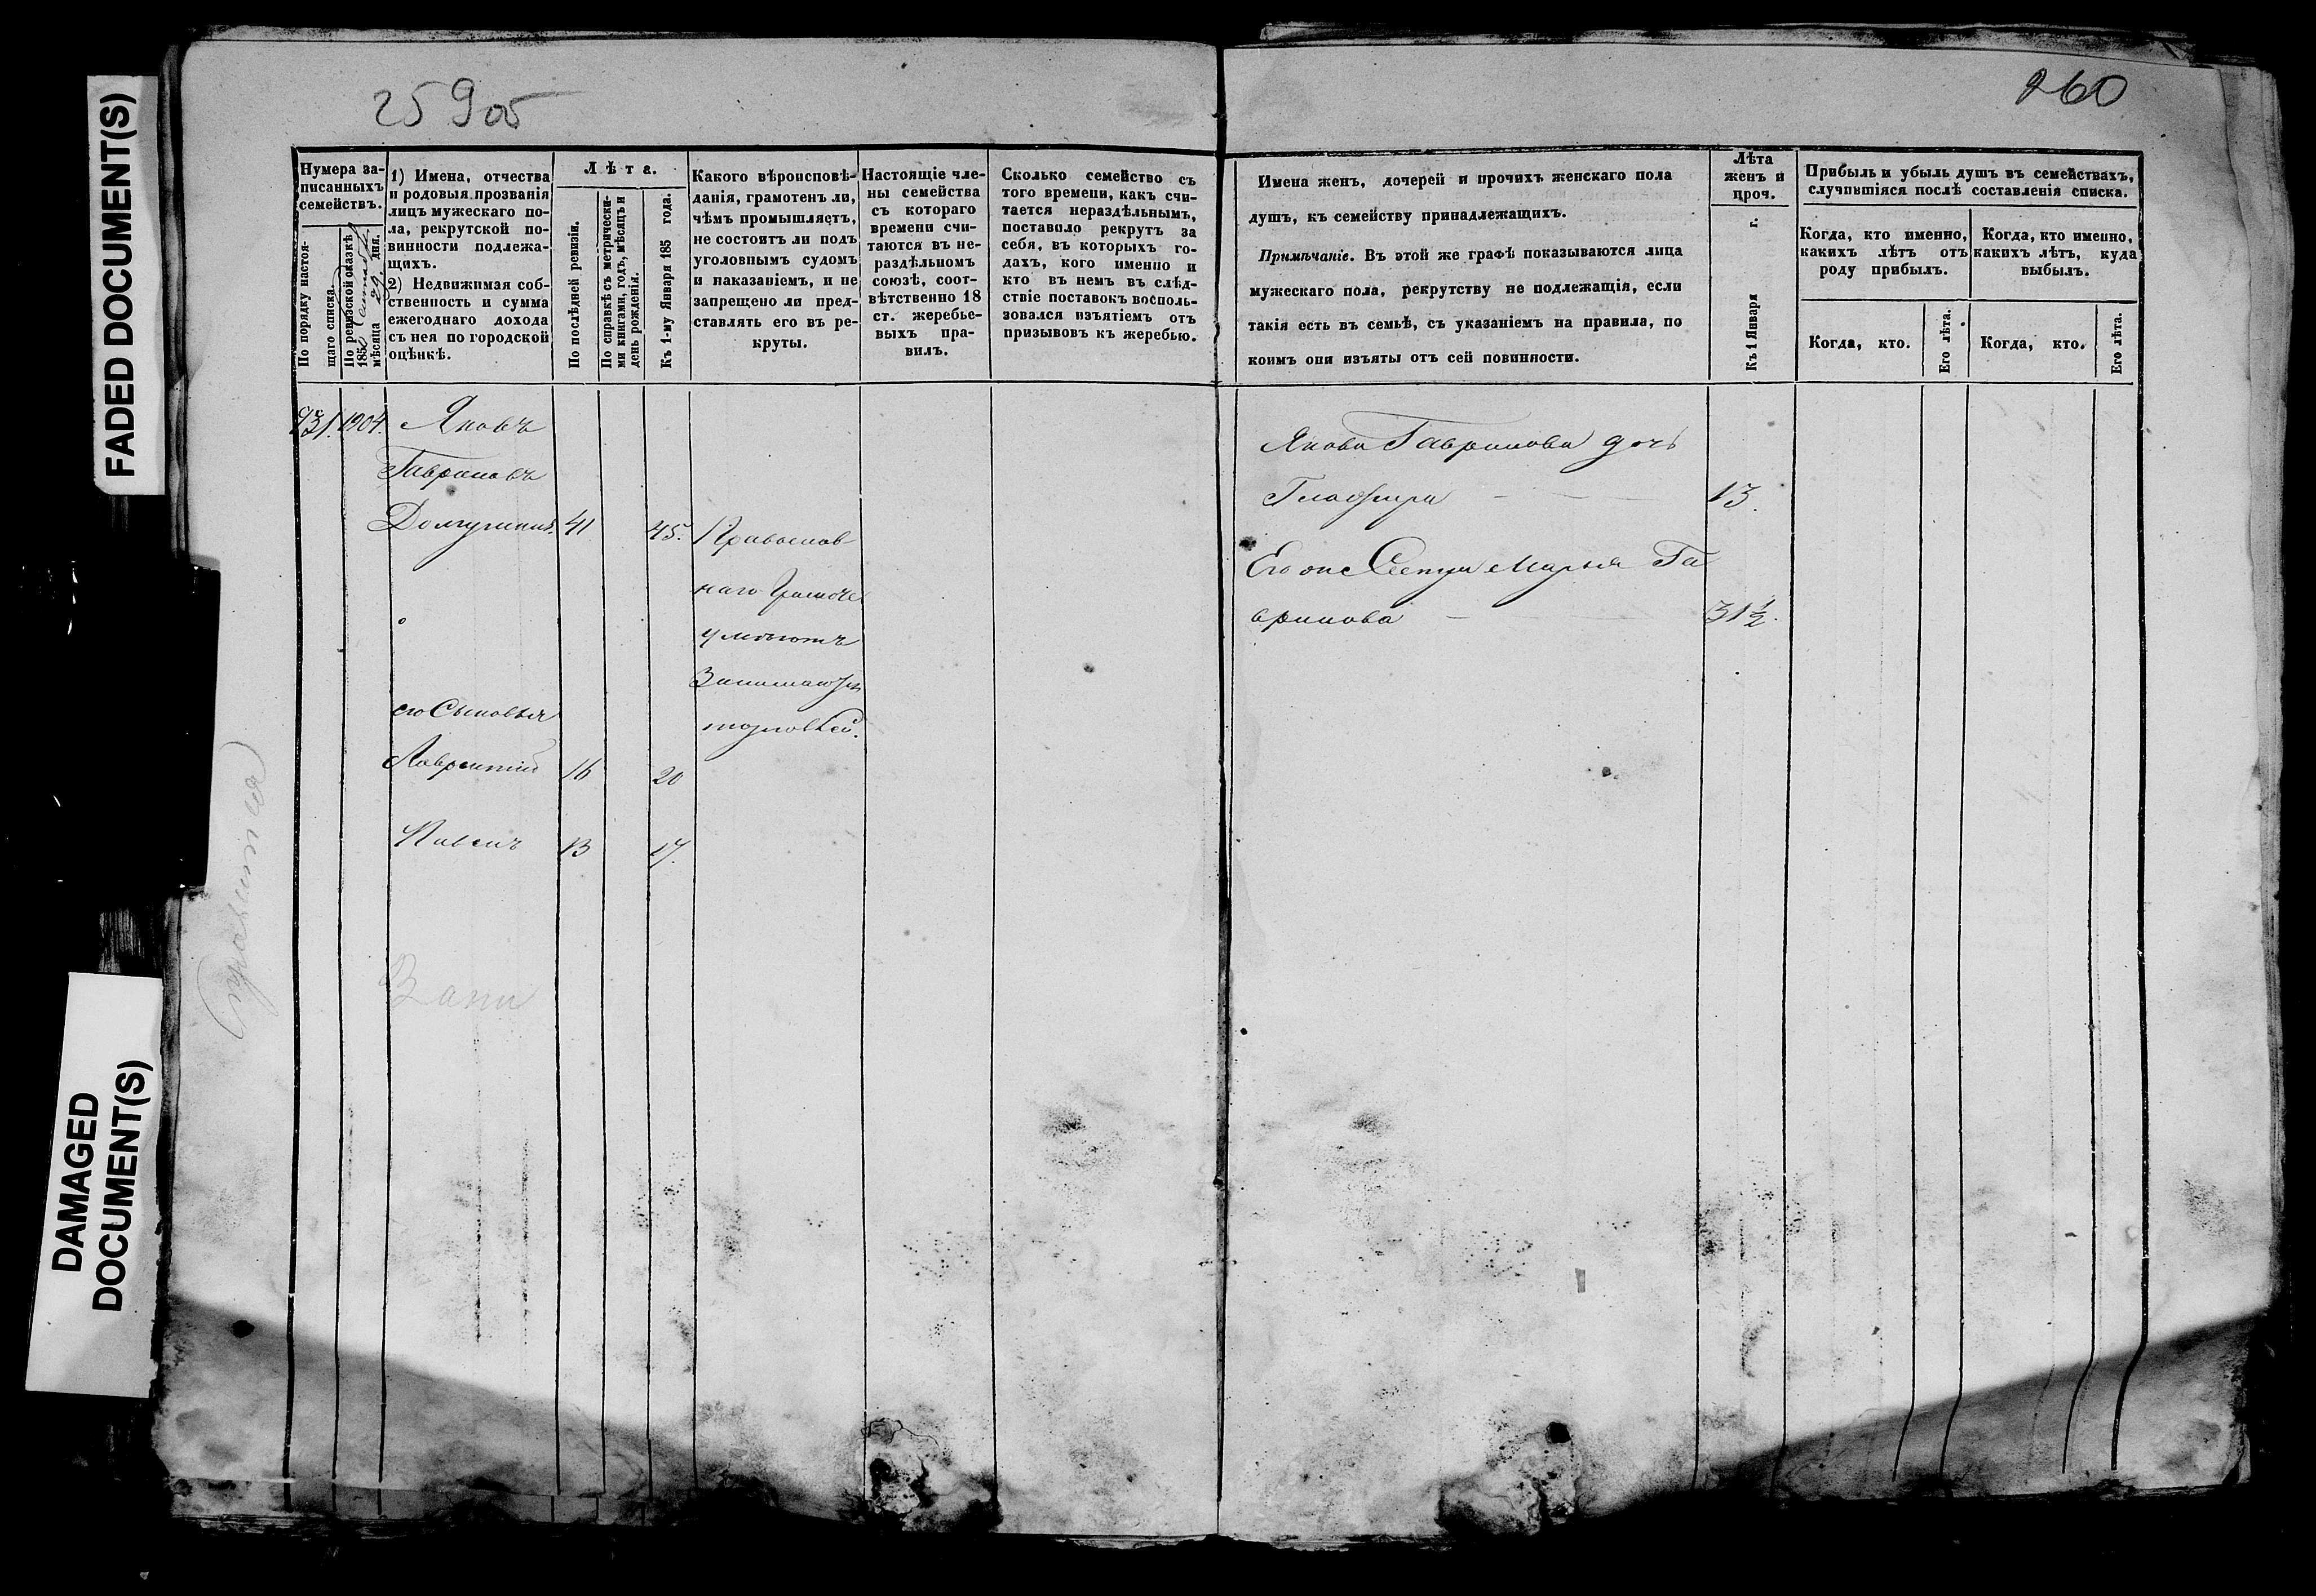 FADED DOCUMENT(S)
DAMAGED
DOCUMENT(S)
259об
260
Нумера за-
писанныхъ
семействъ.
По порядку настоя-
щаго списка.
По ревизской сказкѣ
185
мѣсяца 29 дня.
1) Имена, отчества
и родовыя прозванія
лицъ мужескаго по-
ла, рекрутской по-
винности подлежа-
щихъ.
2) Недвижимая соб-
ственность и сумма
ежегоднаго дохода
съ нея по городской
оцѣнкѣ.
Лѣта.
По послѣдней ревизіи.
По справкѣ съ метрически-
ми книгами, годъ, мѣсяцъ и
день рожденія.
Къ 1-му Января 185 года.
Какого вѣроисповѣ-
данія, грамотенъ ли,
чѣмъ промышляетъ,
не состоитъ ли подъ
уголовнымъ судомъ
и наказаніемъ, и не
запрещено ли пред-
ставлять его въ ре-
круты.
Настоящіе чле-
ны семейства
съ котораго
времени счи-
таются въ не-
раздѣльномъ
союзѣ, соот-
вѣтственно 18
ст. жеребье-
выхъ пра-
вилъ.
Сколько семейство съ
того времени, какъ счи-
тается нераздѣльнымъ,
поставило рекрутъ за
себя, въ которыхъ го-
дахъ, кого именно и
кто въ немъ въ слѣд-
ствіе поставокъ восполь-
зовался изъятіемъ отъ
призывовъ къ жеребью.
Имена женъ, дочерей и прочихъ женскаго пола
душъ, къ семейству принадлежащихъ.
Примѣчаніе. Въ этой же графѣ показываются лица
мужескаго пола, рекрутству не подлежащія, если
такія есть въ семьѣ, съ указаніемъ на правила, по
коимъ они изъяты отъ сей повинности.
Лѣта
женъ и
проч.
Къ 1 Января г.
Прибыль и убыль душъ въ семействахъ,
случившіяся послѣ составленія списка.
Когда, кто именно,
какихъ лѣтъ отъ
роду прибылъ.
Когда, кто именно,
какихъ лѣтъ, куда
выбылъ.
Когда, кто.
Его лѣта.
Когда, кто.
Его лѣта.
931. 1904. Яковъ
Гавриловъ
Долгушинъ. 41 45. Православ
наго Грамоте
умѣютъ
Занимаются
торговлей.
его Сыновья
Лаврентій 16 20
Павелъ 13 17.
Якова Гаврилова дочь
Глафира 13.
Его же Сестра Марья Га
врилова 31 ½.